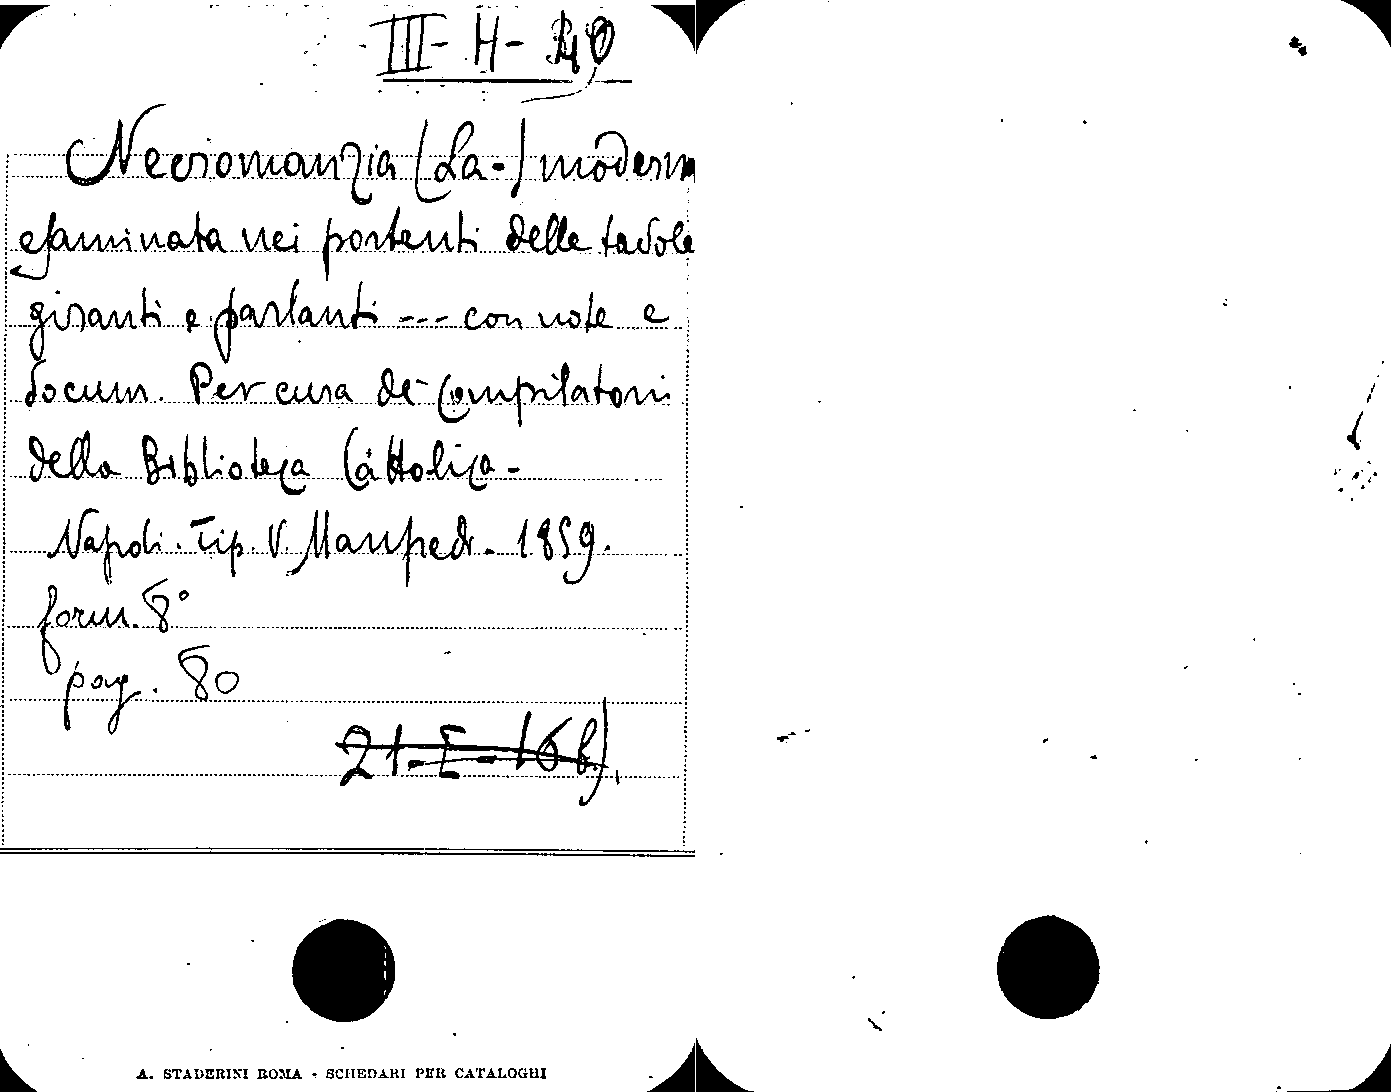 III - H -
Necromanzia (La-) modern
esaminata nei portenti delle tavole
giranti e parlanti --- con note e
docum. Per cura de' Compilatori
della Biblioteca Cattolica -
Napoli. Tip. V. Manfredi. 1859.
form. 8°
pag. 80
21-I-16 b),
A. STADERINI ROMA - SCHEDARI PER CATALOGHI